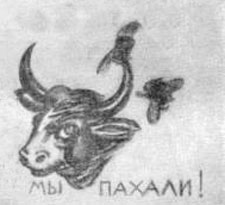 МЫ ПАХАЛИ!